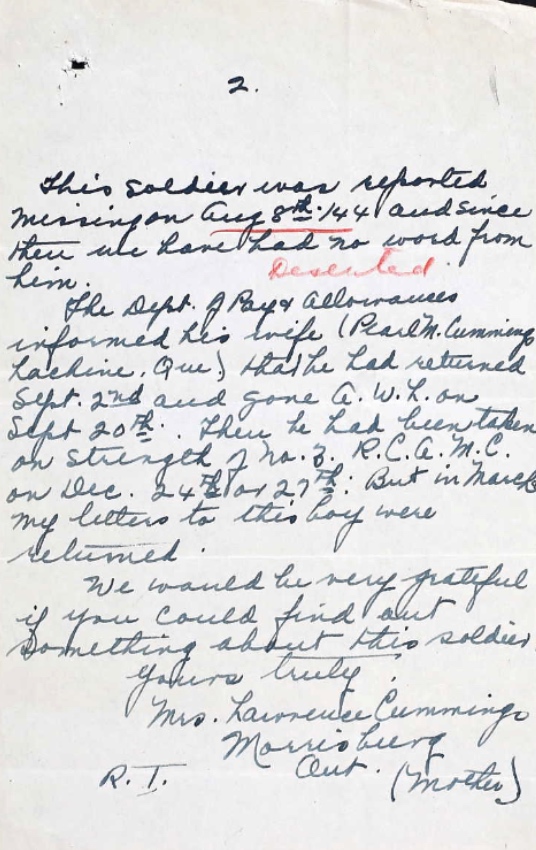 2.
This soldier was reported
missing on Aug 8th '44 and since
then we have had no word from
him. Deserted
The Dept. of Pay & Allowances
informed his wife (Pearl M. Cummings
Lachine, Que.) that he had returned
Sept. 2nd and gone A. W. L. on
Sept 20th. Then he had been taken
on strength of No. 3. R. C. A. M. C.
on Dec. 24th or 27th. But in March
my letters to this boy were
returned.
We would be very grateful
if you could find out
something about this soldier.
Yours truly,
Mrs. Lawrence Cummings
Morrisburg
R. I. Ont. (Mother)